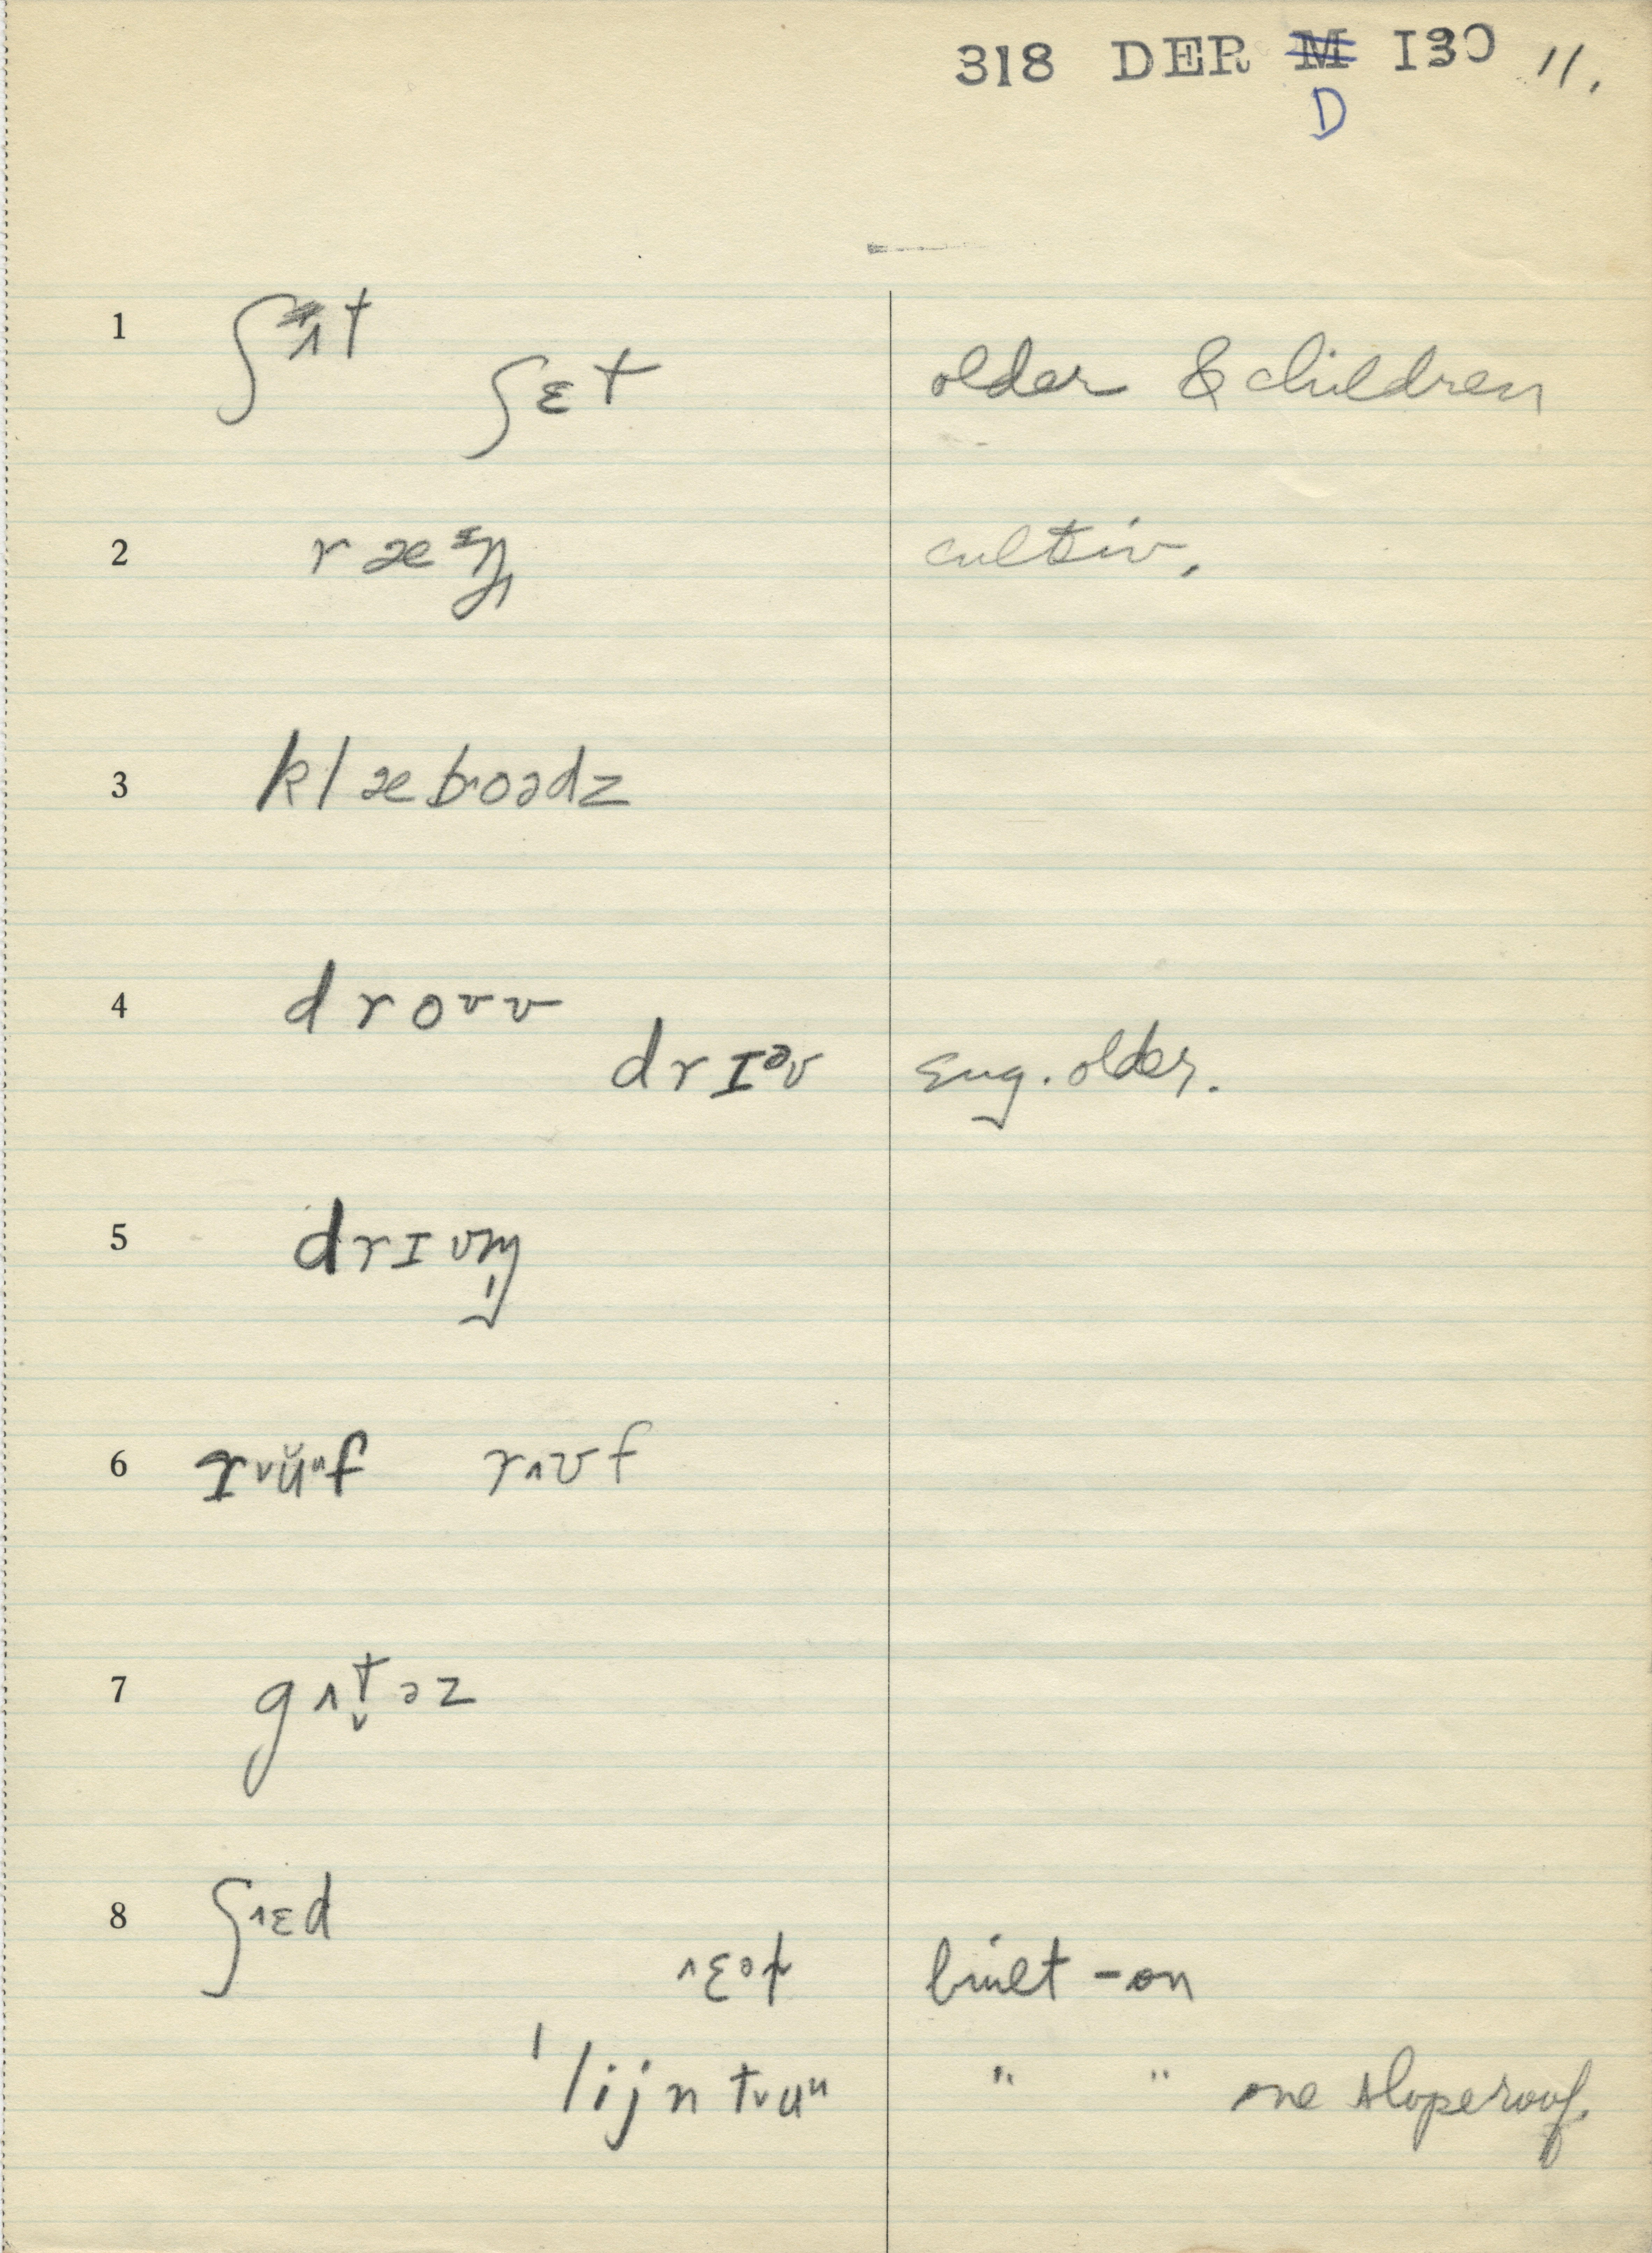 318 DER M I30 11.
D
1 ʃɪt
ʃɛt older & children
2 cultiv.
3 klæboədz
4 droʊv
drɪᵊv Eng. older.
5 drɪvm̩
6 rᵛŭᵘf r˄ʊf
7 g˄t̬əz
8 ʃ˄ɛd
built-on
ˈlijn t˅uᵘ " " one slope roof.